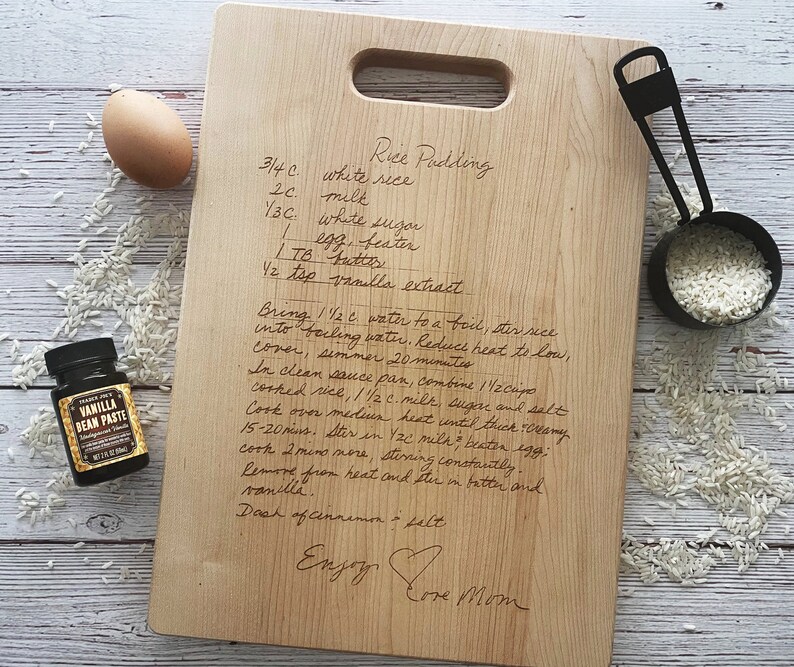 Rice Pudding
3/4 C. white rice
2 C. milk
1/3 C. white sugar
1 egg, beaten
1 TB butter
1/2 tsp vanilla extract
Bring 1 1/2 c. water to a boil, stir rice
into boiling water. Reduce heat to low,
cover, simmer 20 minutes
In clean sauce pan, combine 1 1/2 cups
cooked rice, 1 1/2 c. milk, sugar and salt
Cook over medium heat until thick & creamy
15-20 mins. Stir in 1/2 c milk & beaten egg;
cook 2 mins more, stirring constantly.
Remove from heat and stir in butter and
vanilla.
Dash of cinnamon & salt
Enjoy
Love Mom
TRADER JOE'S
VANILLA
BEAN PASTE
Madagascar Vanilla
NET 2 FL OZ (60mL)